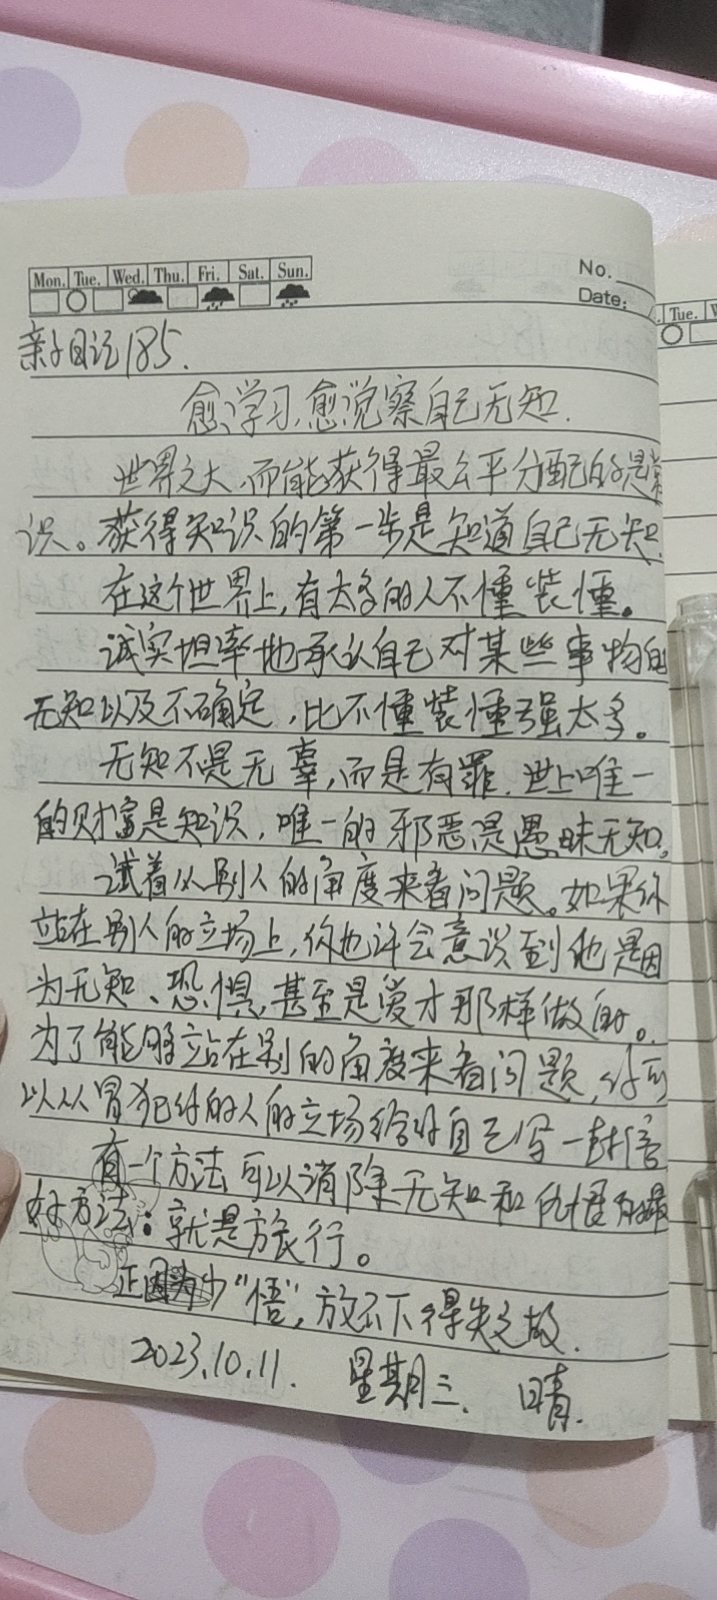 Mon. Tue. Wed. Thu. Fri. Sat. Sun.
No.
Date:
Tue.
亲子日记185.
愈学习,愈觉察自己无知.
世界之大,而能获得最公平分配的是常
识。获得知识的第一步是知道自己无知.
在这个世界上,有太多的人不懂装懂。
诚实坦率地承认自己对某些事物的
无知以及不确定,比不懂装懂强太多。
无知不是无辜,而是有罪.世上唯一
的财富是知识,唯一的邪恶是愚昧无知。
试着从别人的角度来看问题。如果你
站在别人的立场上,你也许会意识到他是因
为无知、恐惧,甚至是爱才那样做的。
为了能够站在别的角度来看问题,你可
以从冒犯你的人的立场给你自己写一封信
有一个方法可以消除无知和仇恨的最
好方法:就是旅行。
正因为少“悟”,放不下得失之故.
2023.10.11. 星期三. 晴.